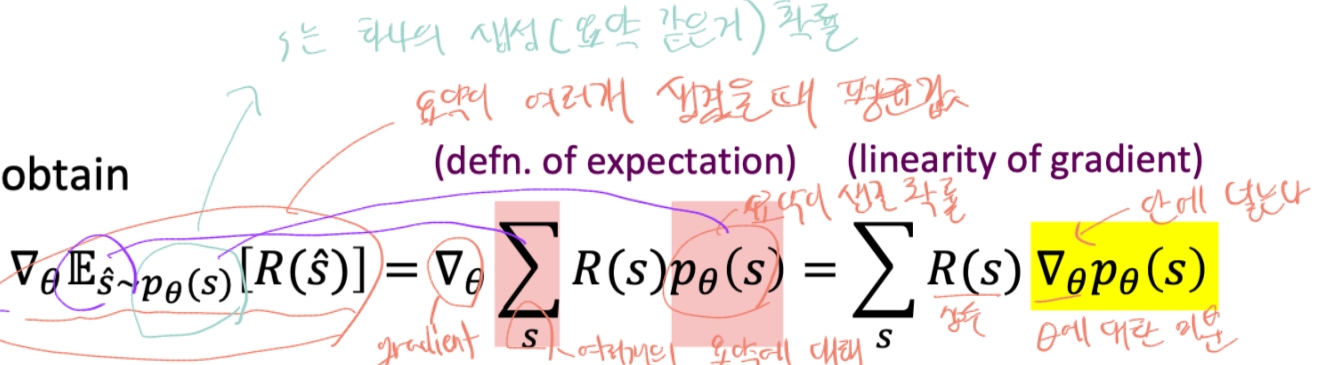 s는 하나의 생성(요약 같은거) 확률
요약이 여러개 생겼을때 평균값
obtain (defn. of expectation) (linearity of gradient)
요약이 생길 확률 안에 넣는다
∇θ 𝔼ŝ~pθ(s)[R(ŝ)] = ∇θ ∑s R(s)pθ(s) = ∑s R(s) ∇θpθ(s)
gradient 여러개의 요약에 대해 상수 θ에 대한 미분